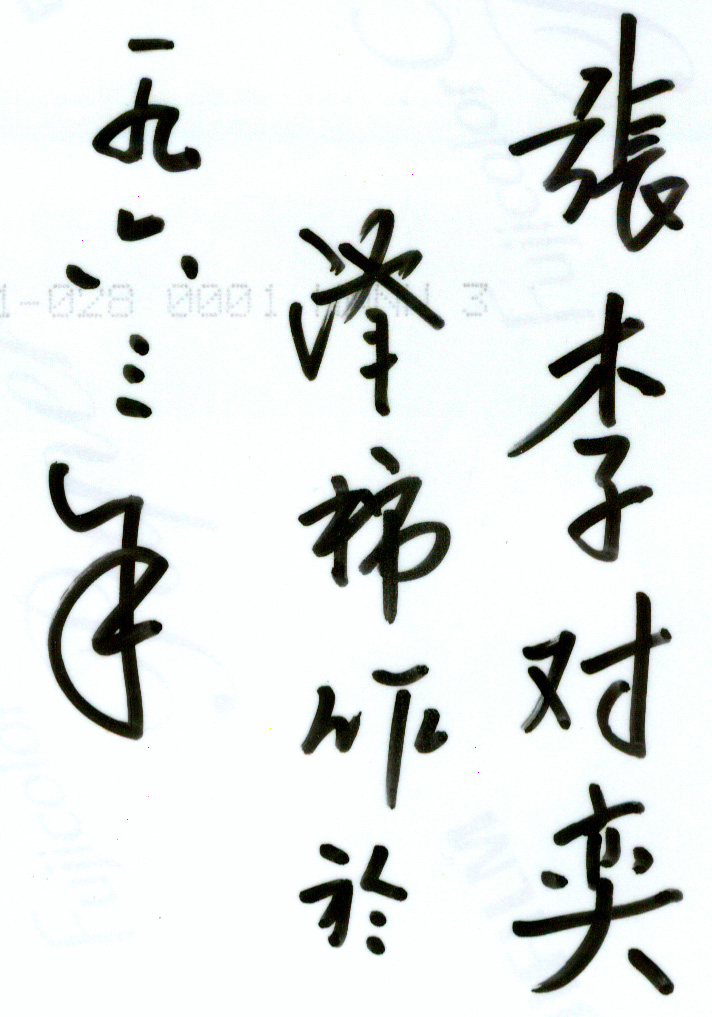 張李对奕
泽柿作於
一九六三年
1-028 0001 3
Fujicolor
Fujicolor